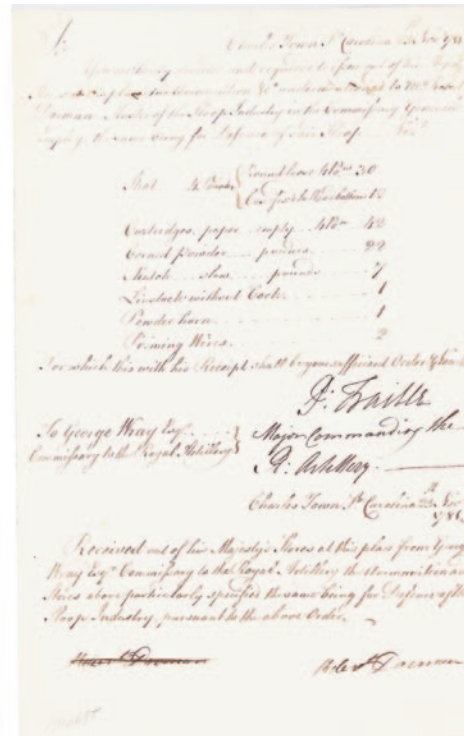 Charles Town So. Carolina Nov. 178
You are hereby and required to Issue out of the
to Mr. Robert
Dorman Master of the Sloop Industry in the Commissary General
employ, the same being for Defence of said Sloop. Vizt.
Shot 4 Pounders { Round loose 4 Pdr. 30
Case fixed to Wood bottoms 12
Cartridges, paper empty 4 Pdr. 42
Corned Powder pounds
Match slow pounds 7
Linstock without Cock 1
Powder horn 1
Priming Wires 2
For which this with his Receipt shall be your sufficient Order
P: Traille
To George Wray Esq. Major Commanding the
Commissary to the Royal Artillery } R: Artillery.
Charles Town So. Carolina Nov.
178
Received out of his Majestys Stores at this place from George
Wray Esqr. Commissary to the Royal Artillery the Ammunition and
Stores above particularly specified the same being for Defence of the
Sloop Industry, pursuant to the above Order.
Robert Dorman